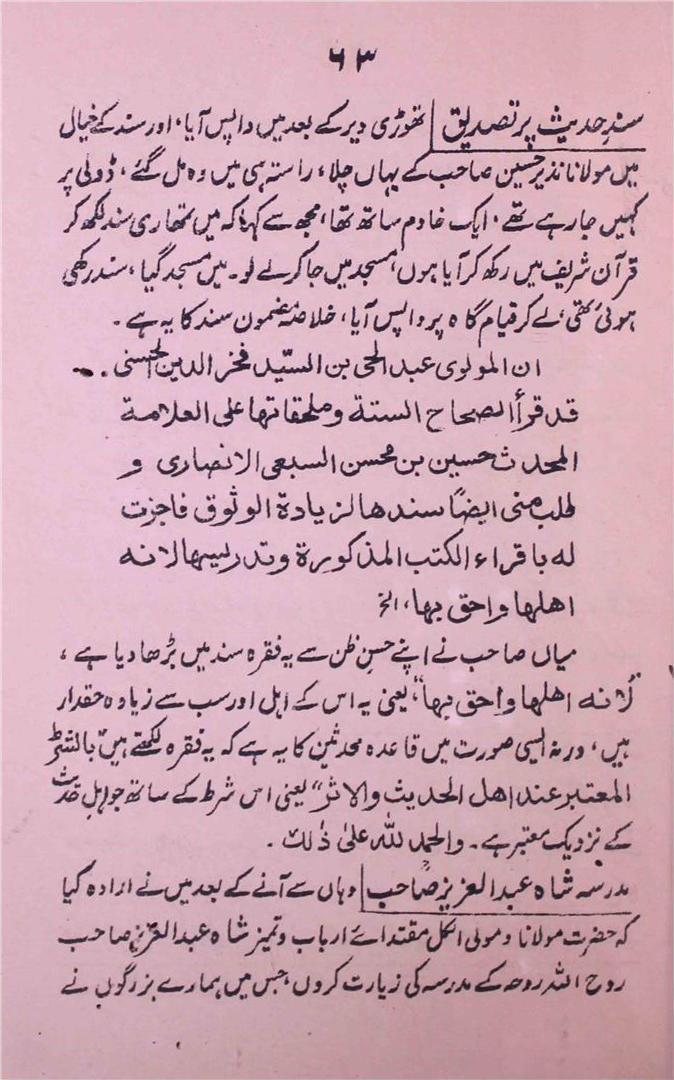 ۶۳
سندِ حدیث پر تصدیق | تھوڑی دیر کے بعد میں واپس آیا، اور سند کے خیال
میں مولانا نذیر حسین صاحب کے یہاں چلا، راستہ ہی میں وہ مل گئے، ڈولی پر
کہیں جا رہے تھے، ایک خادم ساتھ تھا، مجھ سے کہا کہ میں تمھاری سند لکھ کر
قرآن شریف میں رکھ کر آیا ہوں، مسجد میں جا کر لے لو۔ میں مسجد گیا، سند رکھی
ہوئی تھی، لے کر قیام گاہ پر واپس آیا، خلاصۂ مضمون سند کا یہ ہے۔
ان المولوی عبد الحی بن السیّد فخر الدین الحسنی۔
قد قرأ الصحاح الستة وملحقاتها علی العلامة
المحدث حسین بن محسن السبعی الانصاری و
طلب منی ایضًا سندها لزیادة الوثوق فاجزت
له باقراء الکتب المذکورة وتدریسها لانه
اهلها واحق بها، الخ
میاں صاحب نے اپنے حسنِ ظن سے یہ فقرہ سند میں بڑھا دیا ہے،
"لانه اهلها واحق بها"، یعنی یہ اس کے اہل اور سب سے زیادہ حقدار
ہیں، ورنہ ایسی صورت میں قاعدہ محدثین کا یہ ہے کہ یہ فقرہ لکھتے ہیں "بالشرط
المعتبر عند اهل الحدیث والاثر" یعنی اس شرط کے ساتھ جو اہلِ حدیث
کے نزدیک معتبر ہے۔ والحمد للّٰہ علیٰ ذٰلک۔
مدرسہ شاہ عبد العزیز صاحبؒ | وہاں سے آنے کے بعد میں نے ارادہ کیا
کہ حضرت مولانا و مولی الکل مقتدائے ارباب و تمیز شاہ عبد العزیز صاحب
روح اللہ روحہ کے مدرسہ کی زیارت کروں، جس میں ہمارے بزرگوں نے